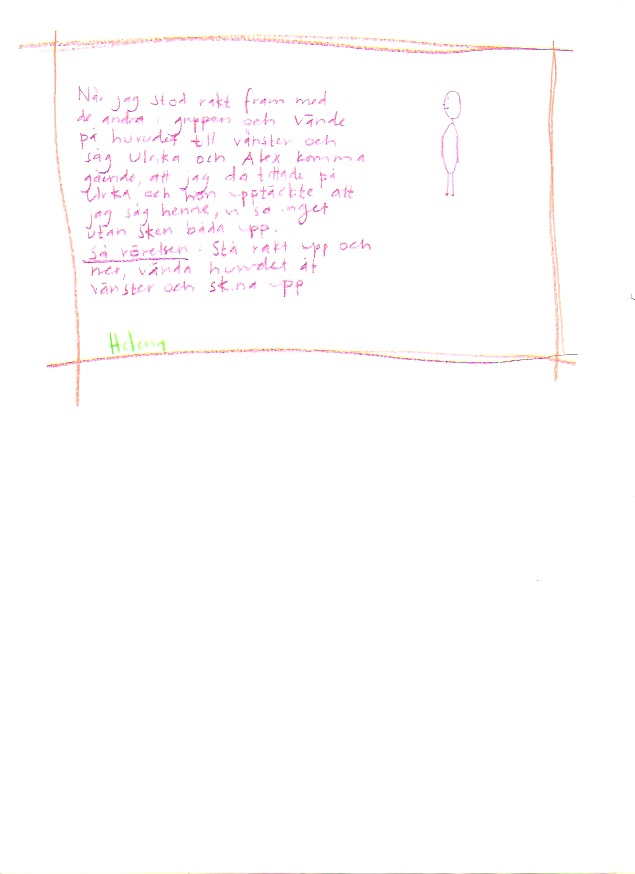 När jag stod rakt fram med
de andra i gruppen och vände
på huvudet till vänster och
såg Ulrika och Alex komma
gående, att jag då tittade på
Ulrika och hon upptäckte att
jag såg henne, vi sa inget
utan sken båda upp.
Så rörelsen. Stå rakt upp och
ner, vända huvudet åt
vänster och skina upp
Helena